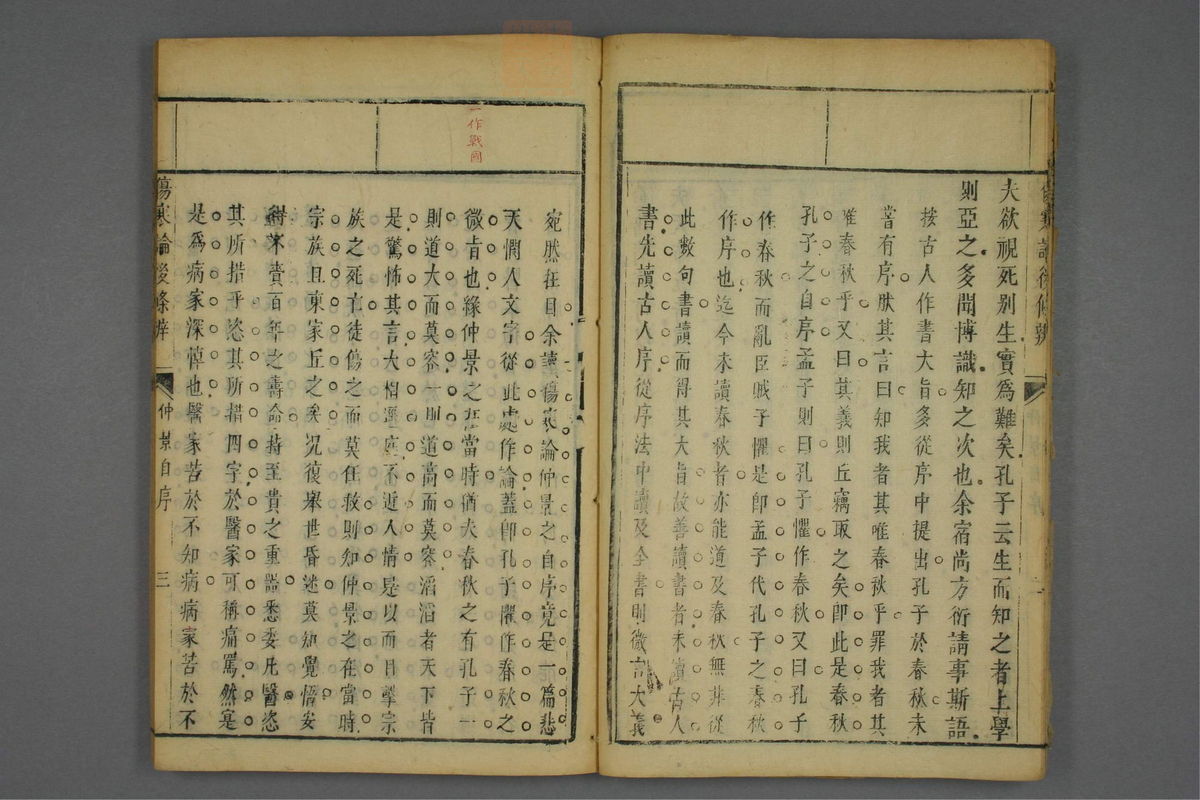 夫欲視死別生實爲難矣孔子云生而知之者上學
則亞之多聞博識知之次也余宿尚方術請事斯語
按古人作書大旨多從序中提出孔子於春秋未
嘗有序肰其言曰知我者其唯春秋乎罪我者其
唯春秋乎又曰其義則丘竊取之矣卽此是春秋
孔子之自序孟子則曰孔子懼作春秋又曰孔子
作春秋而亂臣賊子懼是卽孟子代孔子之春秋
作序也迄今未讀春秋者亦能道及春秋無非從
此數句書讀而得其大旨故善讀書者未讀古人
書先讀古人序從序法中讀及全書則微言大義
宛然在目余讀傷寒論仲景之自序竟是一篇悲
天憫人文字從此處作論蓋卽孔子懼作春秋之
微旨也緣仲景之在當時猶夫春秋之有孔子一
則道大而莫容一則道高而莫容滔滔者天下皆
是驚怖其言大相逕庭不近人情是以而目擊宗
族之死亡徒傷之而莫任救則知仲景之在當時
宗族且東家丘之矣况復舉世昏迷莫知覺悟安
得不賫百年之壽命持至貴之重器悉委凡醫恣
其所措乎恣其所措四字於醫家可稱痛罵然寔
是爲病家深悼也醫家苦於不知病病家苦於不
傷寒論後條辨
仲景自序
三
一作戰國